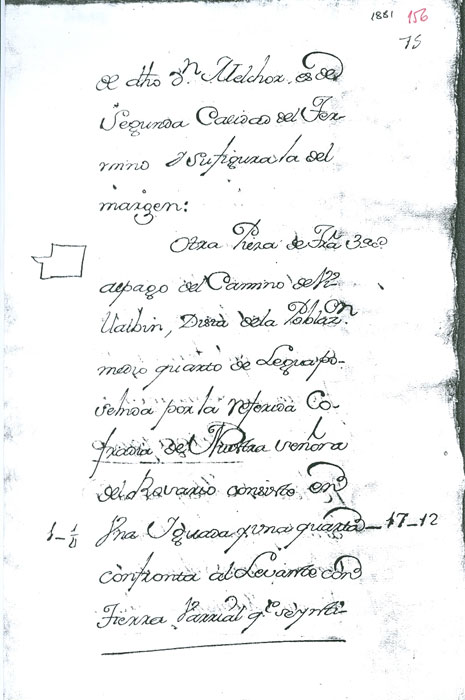 1881 156
75
de dho Dn. Melchor. es de
Segunda Calidad del Ter-
mino I su figura la del
margen:
Otra Pieza de Tra
al pago del Camino de
Dista de la Poblazn.
medio quarto de Legua po-
sehida por la referida Co-
fradia de Nuestra señora
del Rosario consiste en
1-1/4 Vna Iguada y una quarta - 17-12
confronta al Levante con
Tierra qe. se ynti-